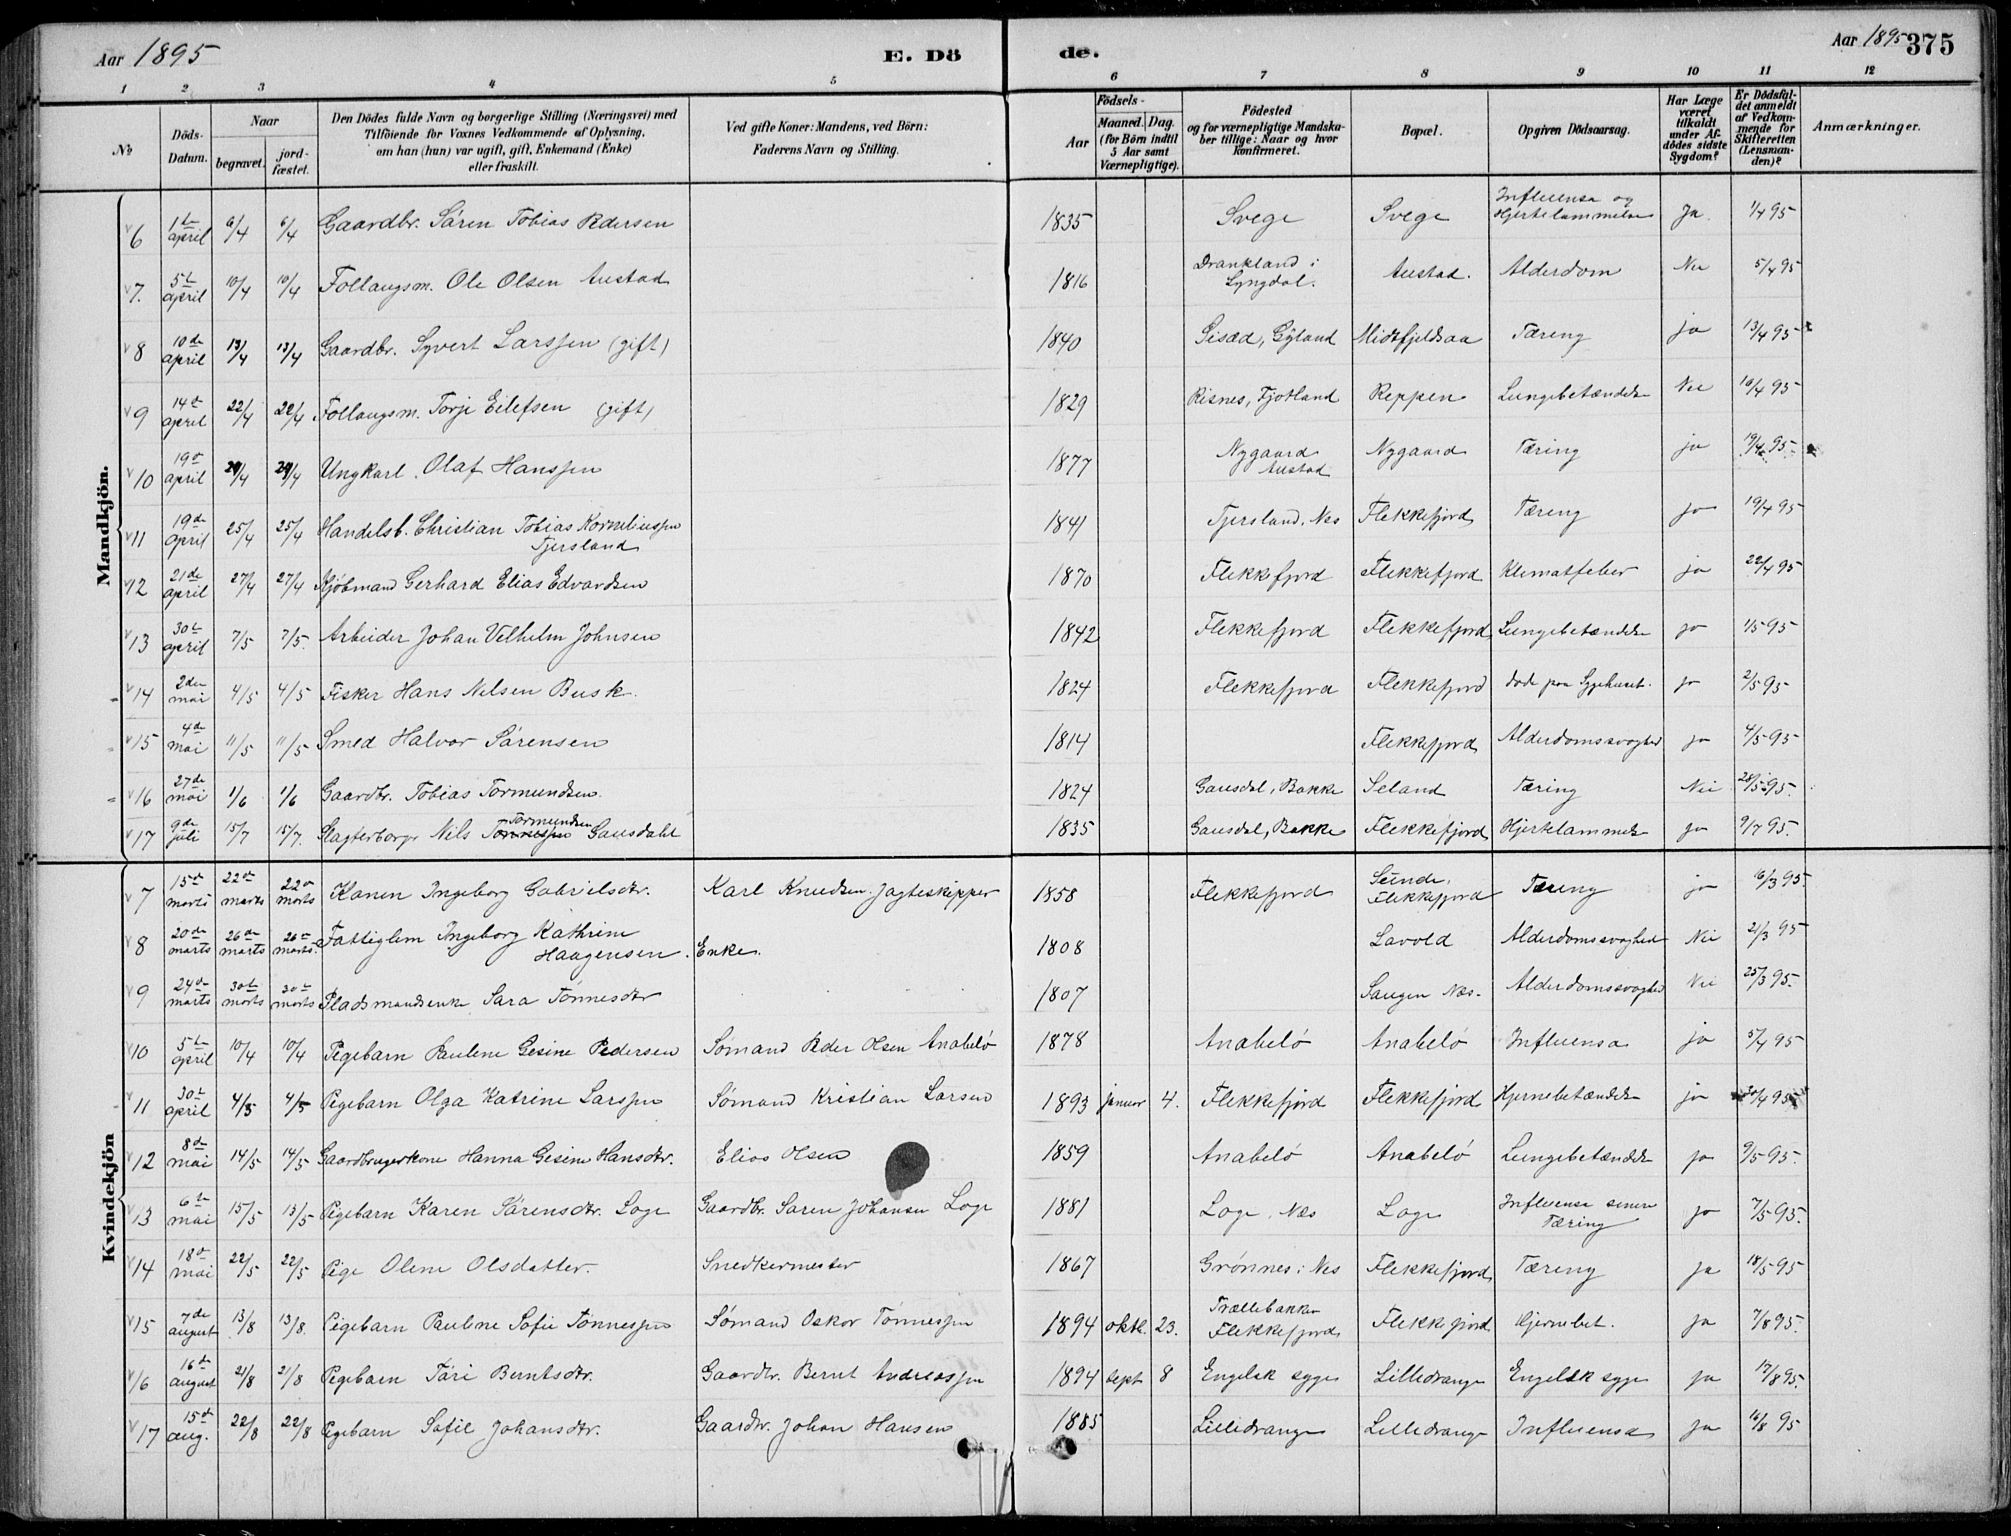 Aar 1895 E. Dö de. Aar 1895 375
1 2 3 4 5 6 7 8 9 10 11 12
№ Döds-Datum. Naar begravet. jordfæstet. Den Dödes fulde Navn og borgerlige Stilling (Næringsvei) med Tilföiende for Voxnes Vedkommende af Oplysning, om han (hun) var ugift, gift, Enkemand (Enke) eller fraskilt. Ved gifte Koner: Mandens, ved Börn: Faderens Navn og Stilling. Födsels- Aar Maaned. Dag. (for Börn indtil 5 Aar samt Værnepligtige). Födested og for værnepligtige Mandskaber tillige: Naar og hvor konfirmeret. Bopæl. Opgiven Dödsaarsag. Har Læge været tilkaldt under Afdödes sidste Sygdom? Er Dödsfaldet anmeldt af Vedkommende for Skifteretten (Lensmanden)? Anmærkninger.
Mandkjön.
6 1te april 6/4 6/4 Gaardbr. Sören Tobias Pedersen 1835 Svege Svege Influensa og Hjertelammelse Ja. 1/4 95
7. 5te april 10/4 10/4 Follaugsm. Ole Olsen Austad 1816 Drankland i Lyngdal. Austad. Alderdom Nei 5/4 95
8 10de april 13/4 13/4 Gaardbr. Syvert Larssen (gift) 1840 Sisæd, Gyland Midtfjeldsaa Tæring ja 13/4 95
9 14de april 22/4 22/4 Follaugsm. Torje Eilefsen (gift) 1829 Risnes, Fjotland Reppen Lungebetændelse Nei 16/4 95
10 19de april Ungkarl. Olaf Hanssen 1877 Nygaard Austad Nygaard Tæring ja 19/4 95
11 19de april 25/4 25/4 Handelsb. Christian Tobias Korneliussen Tjersland 1841 Tjersland, Nes Flekkefjord Tæring ja 19/4 95
12 21de april 27/4 27/4 Kjöbmand Gerhard Elias Edvardsen 1870 Flekkefjord Flekkefjord Klimatfeber ja 22/4 95
13 30te april 7/5 7/5. Arbeider Johan Velhelm Johnsen 1842 Flekkefjord Flekkefjord Lungebetændelse ja 1/5 95
14 2den mai 4/5 4/5 Fisker Hans Nilsen Busk. 1824 Flekkefjord Flekkefjord död paa Sygehuset. ja 2/5 95
15 4de mai 11/5 11/5 Smed Halvor Sörensen 1814 Flekkefjord Alderdomssvaghed ja 4/5 95
16 27de mai 1/6 1/6 Gaardbr. Tobias Tormundsen. 1824 Gausdal, Bakke Seland Tæring Nei 28/5 95.
17 9de juli 15/7 15/7. Slagterborger Nils Tönnessen Tormundsen Gausdahl 1835 Gausdal, Bakke Flekkefjord Hjertelammelse ja 9/7 95.
Kvindekjön
7 15de marts 22de marts 22de marts Konen Ingeborg Gabrielsdtr. Karl Knudsen, Jagteskipper 1858 Flekkefjord Sunde, Flekkefjord Tæring ja 16/3 95.
8 20de marts 26de marts 26de marts. Fattiglem Ingeborg Kathrine Haagensen. Enke. 1808 Lavold Alderdomssvaghed Nei 21/3 95
9 24de marts 30te marts 30te marts Pladsmandsenke Sara Tönnesdtr 1807 Saugen Næs. Alderdomssvaghed Nei 25/3 95.
10 5te april 10/4 10/4 Pigebarn Pauline Gesine Pedersen Sömand Peder Olsen Anabelö 1878 Anabelö Anabelö Influensa ja 5/4 95
11 30te april 4/5 4/5 Pigebarn Olga Katrine Larssen Sömand Kristian Larsen 1893 januar 4. Flekkefjord Flekkefjord Hjernebetændelse ja 30/4 95
12 8de mai 14/5 14/5 Gaardbrugerkone Hanna Gesine Hansdtr. Elias Olsen 1859 Anabelö Anabelö Lungebetændelse ja 9/5 95.
13 6te mai 15/5 15/5 Pigebarn Karen Sörensdtr. Loge Gaardbr. Sören Johansen Loge 1881 Loge, Næs Loge Influensa senere Tæring ja 7/5 95.
14 18de mai 22/5 22/5 Pige Oline Olsdatter. Snedkermester 1867 Grønnes i Nes Flekkefjord Tæring ja 18/5 95
15 7de august 13/8 13/8. Pigebarn Pauline Sofie Tönnessen Sömand Oskar Tönnessen 1894 oktb. 23. Trællebakken Flekkefjord Flekkefjord Hjernebet. ja 7/8 95.
16 16de august 21/8 21/8 Pigebarn Töri Berntsdtr. Gaardbr. Bernt Andreassen 1894 sept 8 Engelsk syge Lilledrange Engelsk syge ja 17/8 95.
17 15de aug. 22/8 22/8 Pigebarn Sofie Johansdtr. Gaardbr. Johan Hansen 1885 Lilledrange Lilledrange Influensa ja 16/8 95